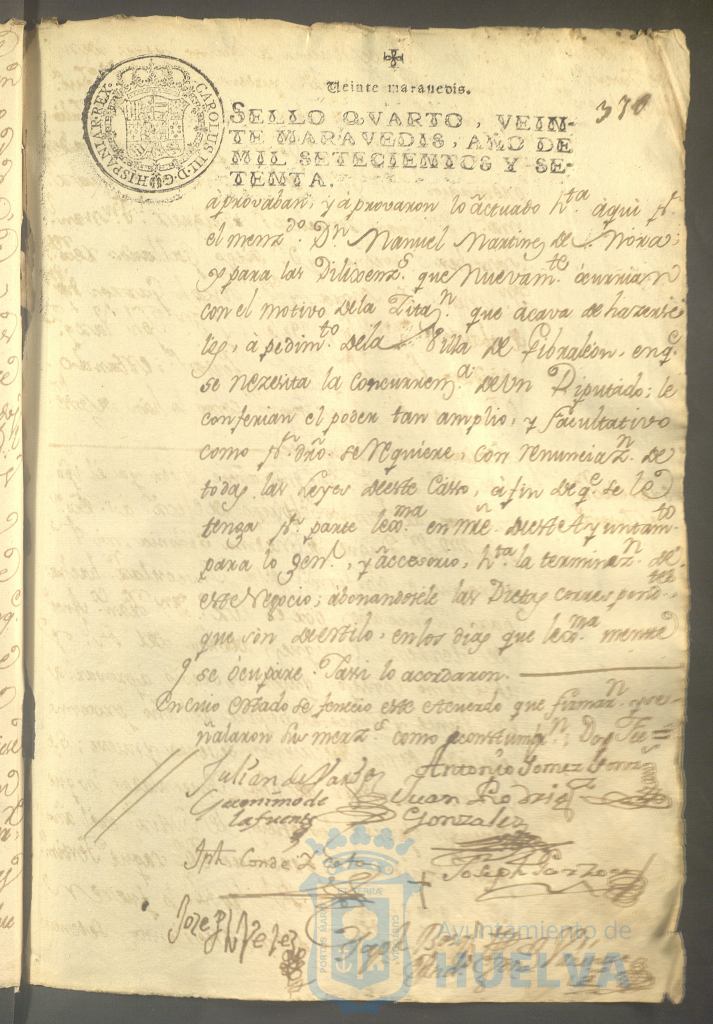 Veinte maravedis.
370
CAROLUS III. D. G. HISPANIAR. REX.
SELLO QVARTO, VEIN-
TE MARAVEDIS, AÑO DE
MIL SETECIENTOS Y SE-
TENTA.
aprovaban, y aprovaron lo actuado hta. aqui pr.
el menzdo. Dn. Manuel Martinez de Mora;
y para las Dilixenzs. que Nuevamte. ocurrian
con el motivo dela Zitan. que acava de hazerse
les, à pedimto. dela Villa de Gibraleon, en q.e
se nezesita la concurrena. de un Diputado; le
conferian el poder tan amplio, y facultativo
como pr. dro. se Requiere, con renunciazn. de
todas las Leyes deeste Casso, à fin de q.e se le
tenga pr. parte lexma. en nre. deeste Ayuntamto.
para lo gen.l, y accesorio, hta. la terminazn. de
este Negocio; abonandosele las Dietas correspondtes.
que son de estilo, en los dias que lexma. mente
se ocupare. Y assi lo acordaron.
En cuio estado se fenecio este Acuerdo que firmarn. y se-
ñalaron sus merzs. como acostumbn.; Doy Fee=
Julian de
Antonio Gomez
Geronimo de
la fuente
Juan Rodrig
Gonzalez
Jph. Conde
Joseph Garzon
Jozeph Velez
PORTUS MARIS ET TERRAE CUSTODIA
Ayuntamiento de
HUELVA